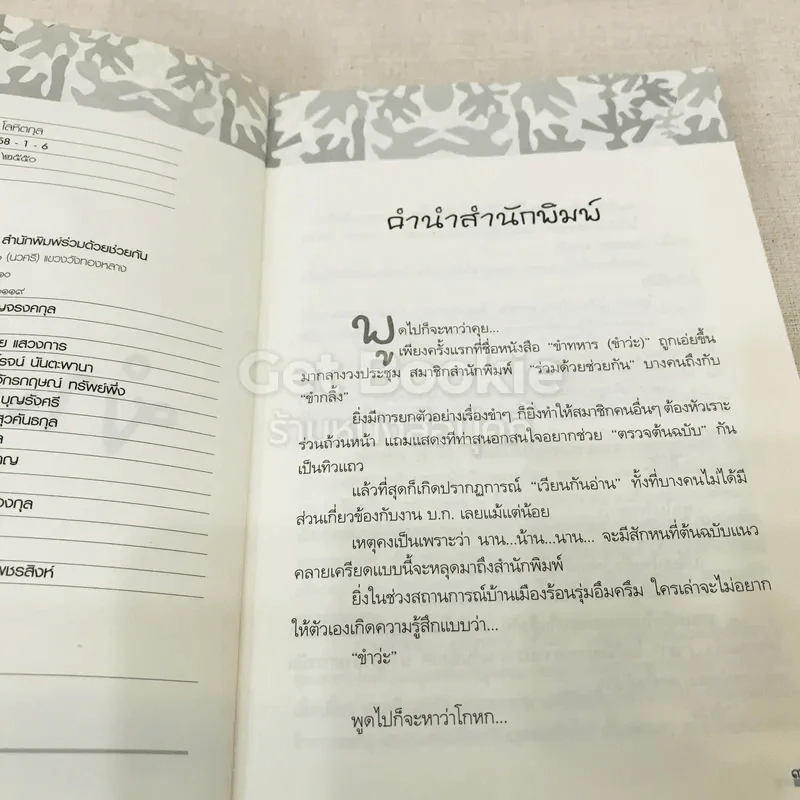 โลหิตกุล
58 - 1 - 6
๒๕๕๐
สำนักพิมพ์ร่วมด้วยช่วยกัน
(นวศรี) แขวงวังทองหลาง
แสวงการ
นันตะพานา
จักรกฤษณ์ ทรัพย์พึ่ง
บุญรังศรี
คำนำสำนักพิมพ์
พูดไปก็จะหาว่าคุย...
เพียงครั้งแรกที่ชื่อหนังสือ "ขำทหาร (ขำว่ะ)" ถูกเอ่ยขึ้น
มากลางวงประชุม สมาชิกสำนักพิมพ์ "ร่วมด้วยช่วยกัน" บางคนถึงกับ
"ขำกลิ้ง"
ยิ่งมีการยกตัวอย่างเรื่องขำๆ ก็ยิ่งทำให้สมาชิกคนอื่นๆ ต้องหัวเราะ
ร่วนถ้วนหน้า แถมแสดงทีท่าสนอกสนใจอยากช่วย "ตรวจต้นฉบับ" กัน
เป็นทิวแถว
แล้วที่สุดก็เกิดปรากฏการณ์ "เวียนกันอ่าน" ทั้งที่บางคนไม่ได้มี
ส่วนเกี่ยวข้องกับงาน บ.ก. เลยแม้แต่น้อย
เหตุคงเป็นเพราะว่า นาน...น้าน...นาน... จะมีสักหนที่ต้นฉบับแนว
คลายเครียดแบบนี้จะหลุดมาถึงสำนักพิมพ์
ยิ่งในช่วงสถานการณ์บ้านเมืองร้อนรุ่มอึมครึม ใครเล่าจะไม่อยาก
ให้ตัวเองเกิดความรู้สึกแบบว่า...
"ขำว่ะ"
พูดไปก็จะหาว่าโกหก...
Get Bookie
ร้านหนังสือบุคกี้